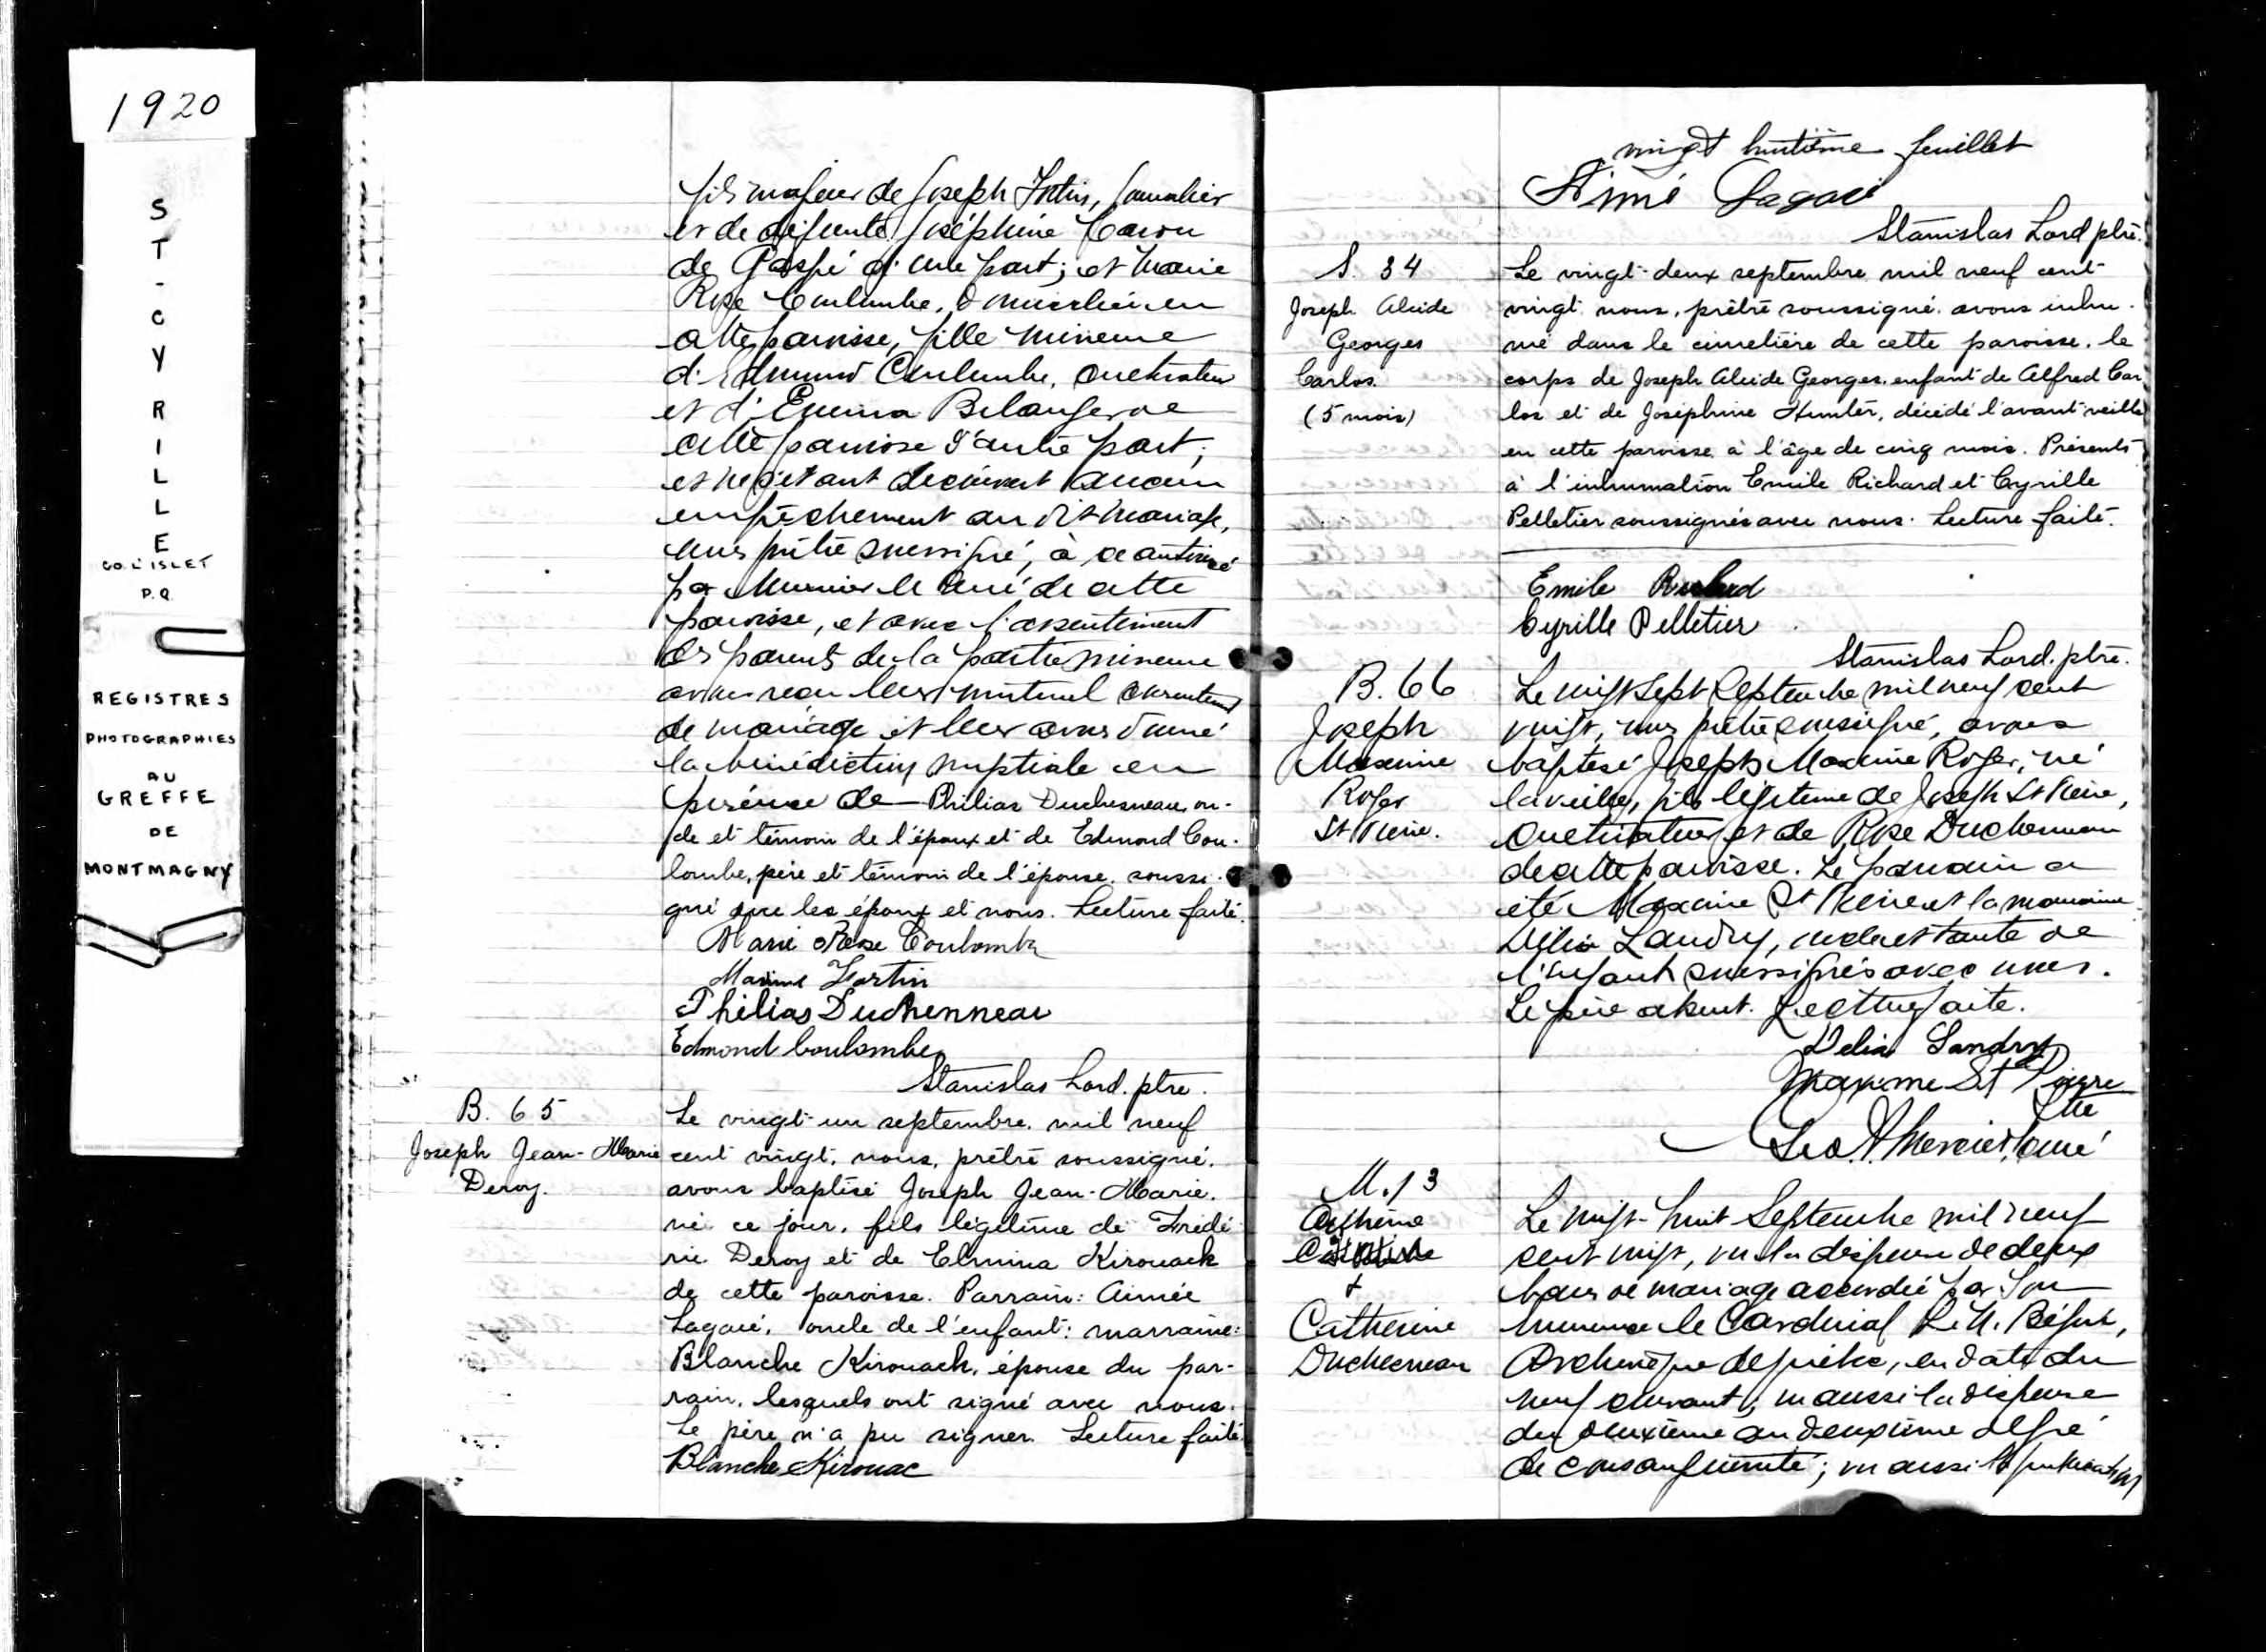 1920
ST-CYRILLE
CO. L'ISLET
P.Q.
REGISTRES
PHOTOGRAPHIES
AU
GREFFE
DE
MONTMAGNY
fils majeur de Joseph Fortin, journalier
et de défunte Joséphine Caron
de Gaspé d'une part; et Marie
Rose Coulombe, domiciliée en
cette paroisse, fille mineure
d'Edmond Coulombe, cultivateur
et d'Emma Belanger de
cette paroisse d'autre part;
et ne s'étant découvert aucun
empêchement au dit mariage,
nous prêtre soussigné, à ce autorisé
par Monsieur le Curé de cette
paroisse, et avec l'assentiment
des parents de la partie mineure
avons reçu leur mutuel consentement
de mariage et leur avons donné
la bénédiction nuptiale en
présence de Philias Duchesneau, on-
cle et témoin de l'époux et de Edmond Cou-
lombe, père et témoin de l'épouse, soussi-
gné avec les époux et nous. Lecture faite.
Marie Rose Coulombe
Maxime Fortin
Philias Duchenneau
Edmond Coulombe
Stanislas Lord. ptre.
B. 65
Joseph Jean-Marie
Deroy.
Le vingt-un septembre, mil neuf
cent vingt, nous, prêtre soussigné,
avons baptisé Joseph Jean-Marie,
né ce jour, fils légitime de Frédé
ric Deroy et de Elmina Kirouack
de cette paroisse. Parrain: Aimée
Lagacé, oncle de l'enfant: marraine:
Blanche Kirouack, épouse du par-
rain, lesquels ont signé avec nous.
Le père n'a pu signer. Lecture faite.
Blanche Kirouac
vingt huitième feuillet
Aimé Lagacé
Stanislas Lord ptre.
S. 34
Joseph Alcide
Georges
Carlos.
(5 mois)
Le vingt-deux septembre mil neuf cent-
vingt nous, prêtre soussigné, avons inhu-
mé dans le cimetière de cette paroisse, le
corps de Joseph Alcide Georges, enfant de Alfred Car
los et de Joséphine Hunter, décédé l'avant-veille
en cette paroisse à l'âge de cinq mois. Présents
à l'inhumation Emile Richard et Cyrille
Pelletier soussignés avec nous. Lecture faite.
Emile Richard
Cyrille Pelletier
Stanislas Lord. ptre.
B. 66
Joseph
Maxime
Roger
St Pierre.
Le vingt sept Septembre mil neuf cent
vingt, nous prêtre soussigné, avons
baptisé Joseph Maxime Roger, né
la veille, fils légitime de Joseph St Pierre,
cultivateur et de Rose Duchenneau
de cette paroisse. Le parrain a
été Maxime St Pierre et la marraine
Délia Landry, oncle et tante de
l'enfant soussignés avec nous.
Le père absent. Lecture faite.
Delia Landry
Maxime St Pierre
Ptre
Mercier, curé
M. 13
&
Catherine
Duchesneau
Le vingt-huit Septembre mil neuf
cent vingt, vu la dispense de deux
bans de mariage accordée par Son
Eminence le Cardinal L. N. Bégin,
Archevêque de Québec, en date du
neuf courant; vu aussi la dispense
du deuxième au deuxième degré
de consanguinité; vu aussi la publication